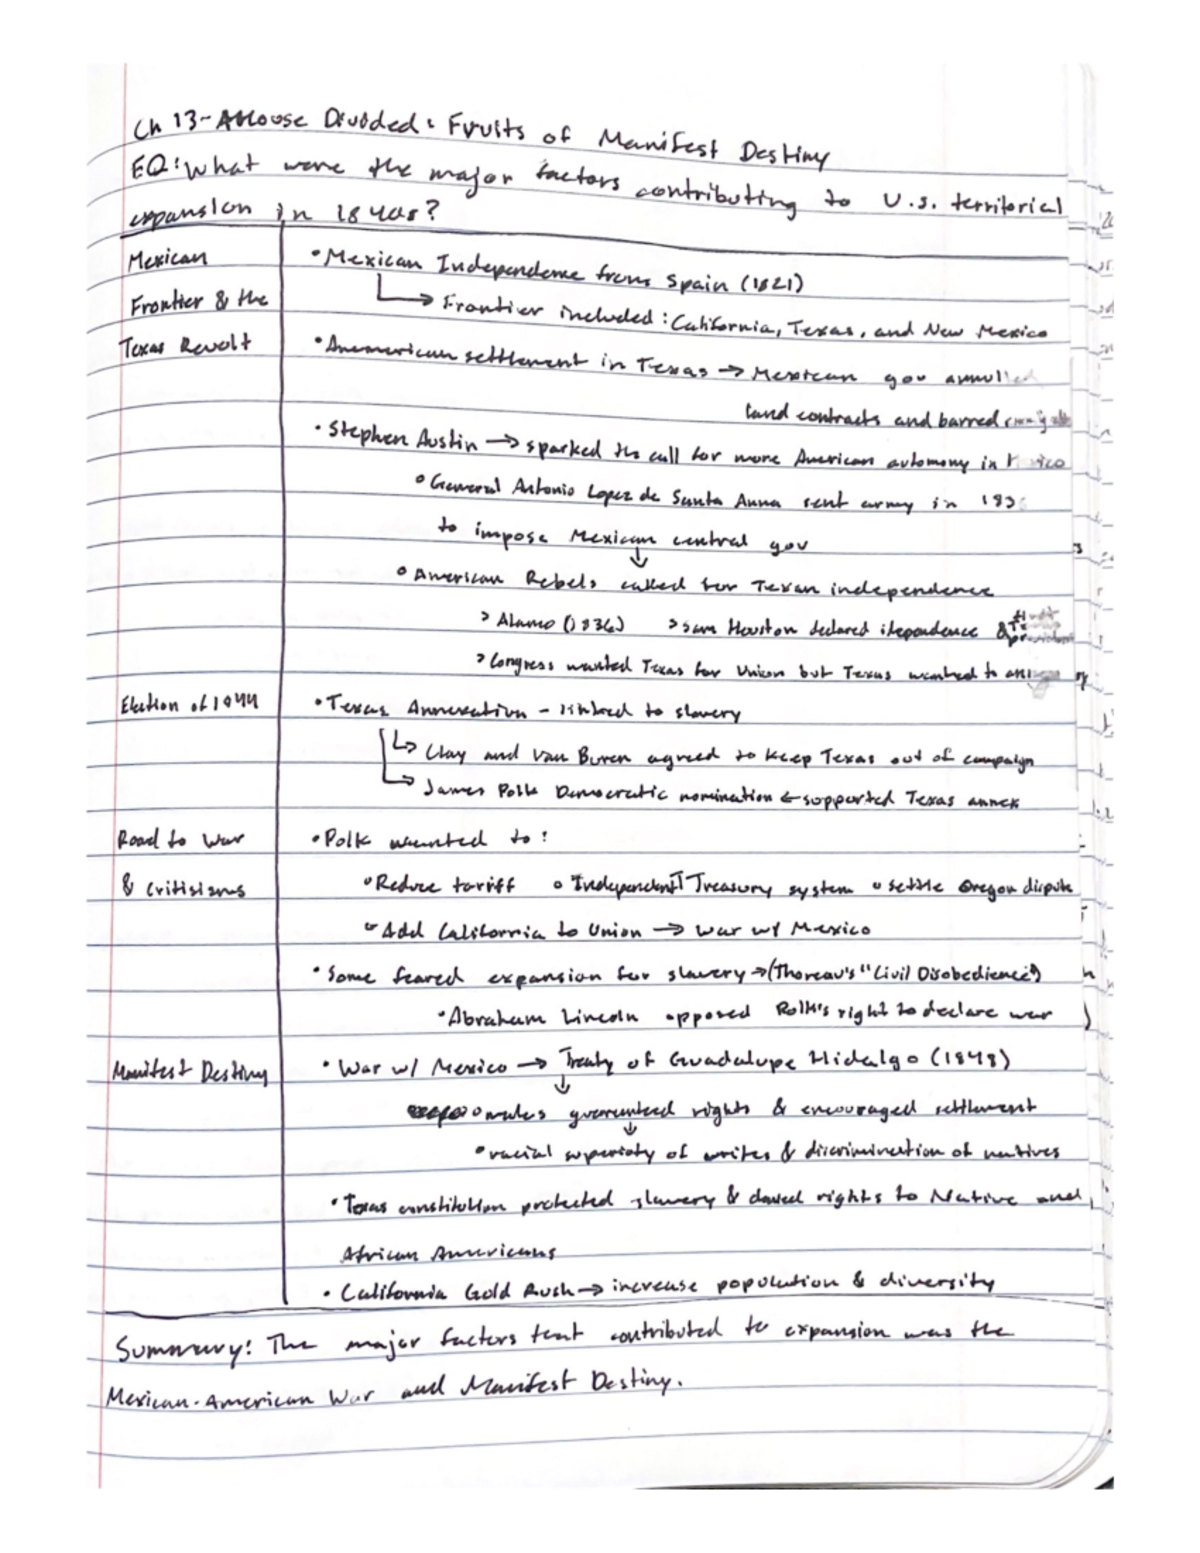 Ch 13 - A House Divided: Fruits of Manifest Destiny
EQ: What were the major factors contributing to U.S. territorial
expansion in 1840s?
Mexican
Frontier & the
Texas Revolt
• Mexican Independence from Spain (1821)
↳ Frontier included: California, Texas, and New Mexico
• Anemerican settlement in Texas → Mexican gov annulled
land contracts and barred
• Stephen Austin → sparked the call for more American automony in
∘ General Antonio Lopez de Santa Anna sent army in
to impose Mexican central gov
↓
∘ American Rebels called for Texan independence
> Alamo (1836) > Sam Houston declared idependence &
> Congress wanted Texas for Union but Texas wanted to
Election of 1844
• Texas Annexation - linked to slavery
↳ Clay and Van Buren agreed to keep Texas out of campaign
↳ James Polk Democratic nomination ← supported Texas annex
Road to War
& Critisisms
• Polk wanted to:
∘ Reduce tariff ∘ Independent Treasury system ∘ settle Oregon dispute
∘ Add California to Union → war w/ Mexico
• Some feared expansion for slavery → (Thoreau's "Civil Disobedience")
• Abraham Lincoln opposed Polk's right to declare war
Manifest Destiny
• War w/ Mexico → Treaty of Guadalupe Hidalgo (1848)
↓
∘ males guaranteed rights & encouraged settlement
↓
• racial superioty of writes & discrimination of natives
• Texas constitution protected slavery & denied rights to Native and
African Americans
• California Gold Rush → increase population & diversity
Summary: The major factors that contributed to expansion was the
Mexican-American War and Manifest Destiny.